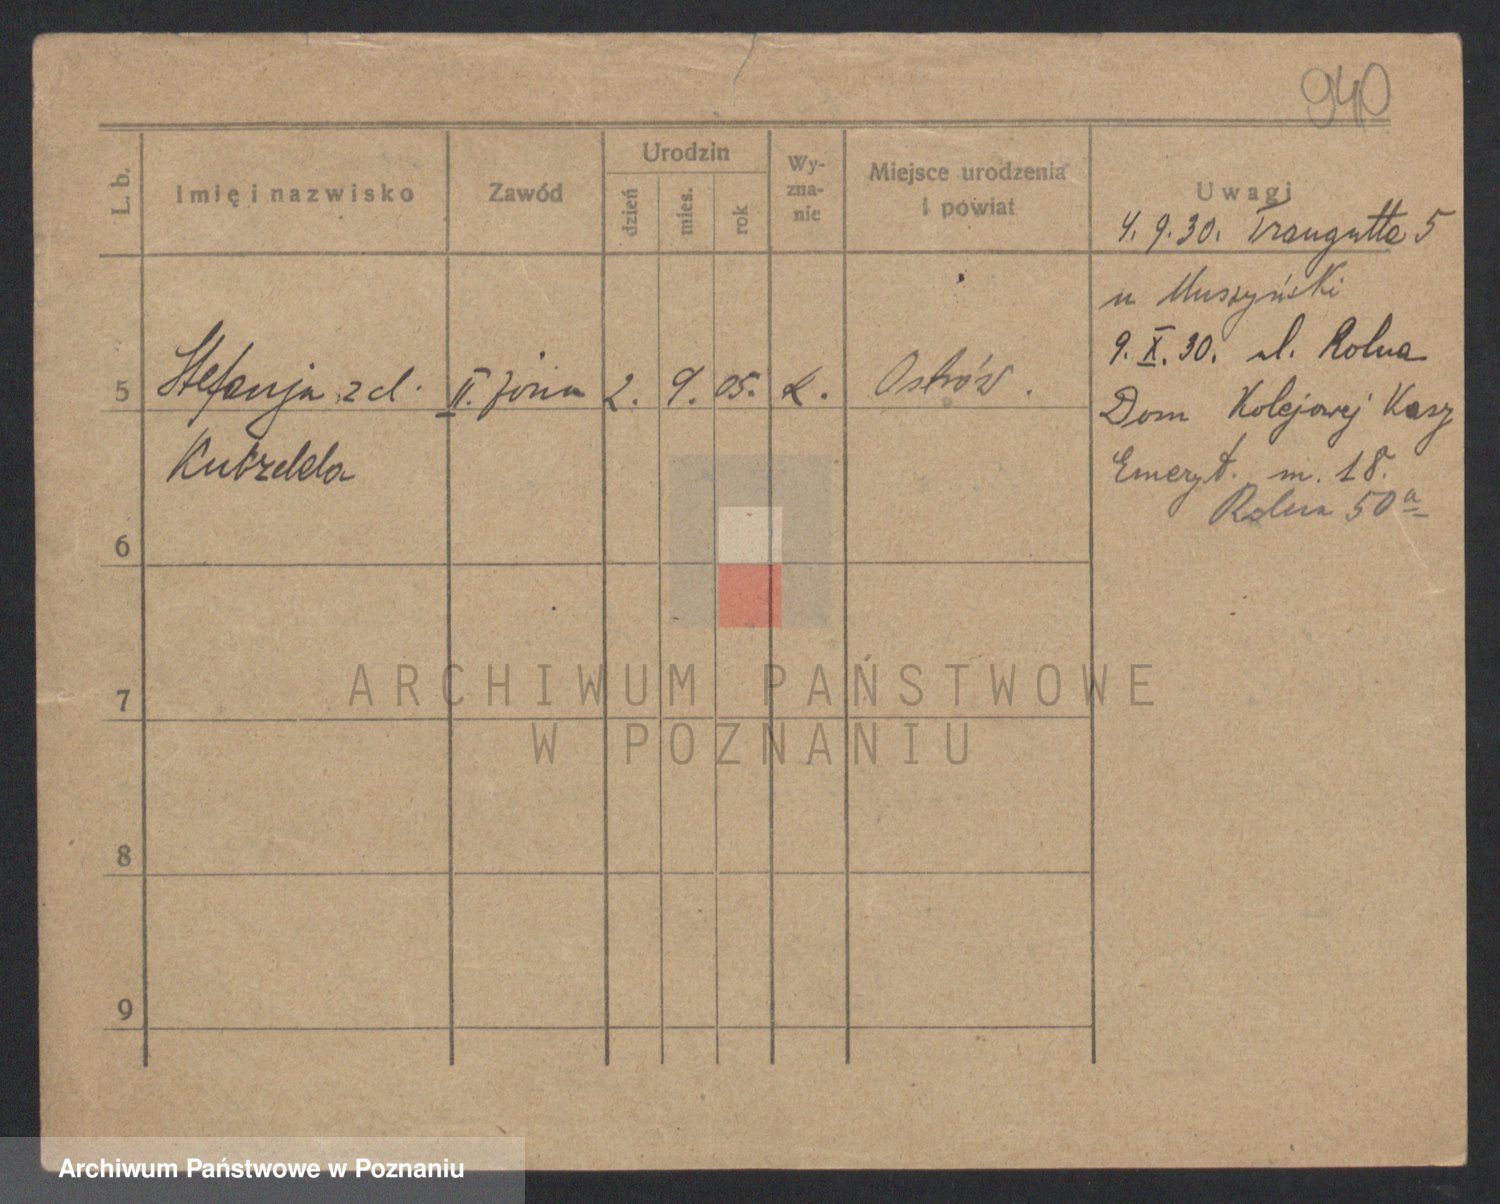 940
L. b.
Imię i nazwisko
Zawód
Urodzin
dzień
mies.
rok
Wy-
zna-
nie
Miejsce urodzenia
i powiat
Uwagi
4. 9. 30. Traugutta 5
u Muszyński
9. X. 30. ul. Rolna
Dom Kolejowej Kasy
Emeryt. m. 18.
Rolna 50 a
5
Stefanja z d.
II. żona
2.
9.
05.
k.
Ostrów.
6
7
8
9
ARCHIWUM PAŃSTWOWE
W POZNANIU
Archiwum Państwowe w Poznaniu